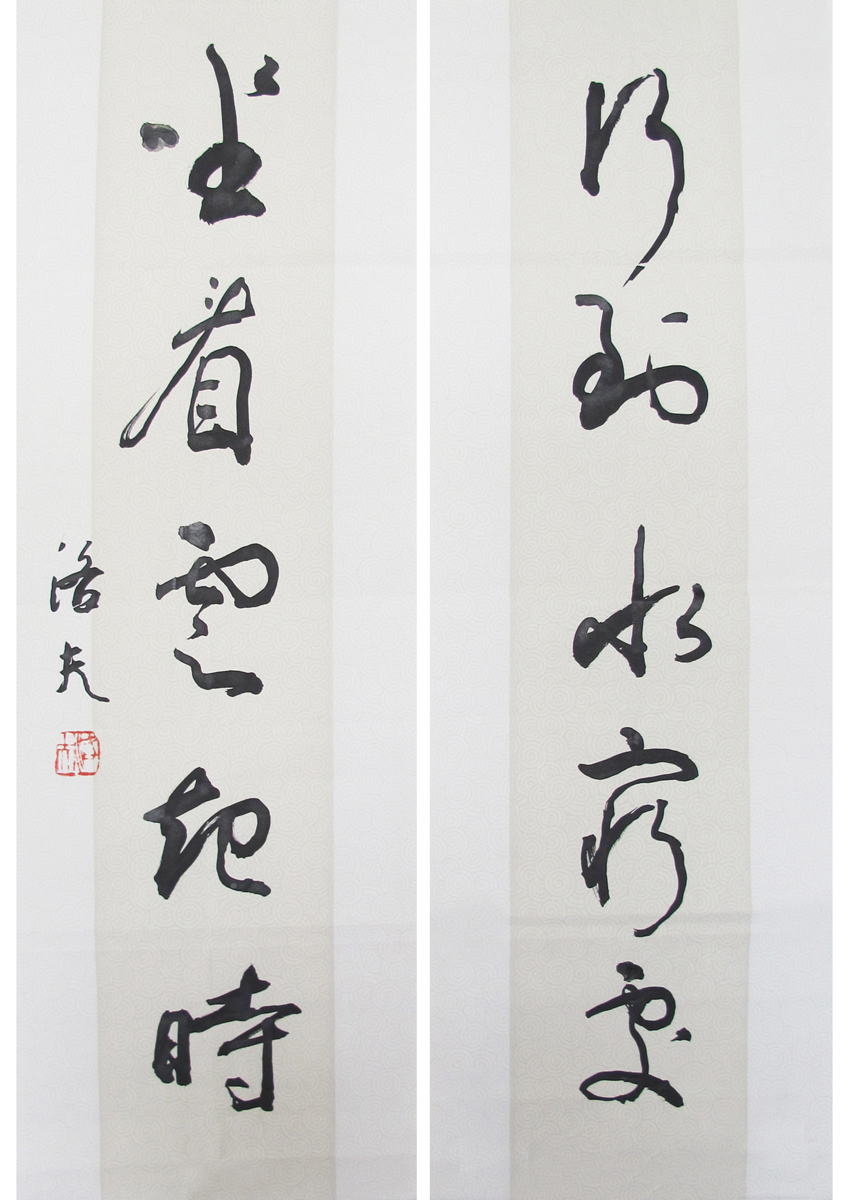 行到水窮處
坐看雲起時
洛夫